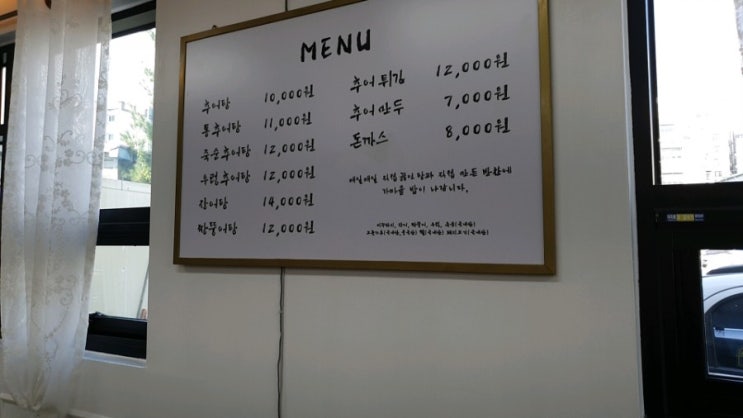 MENU
추어탕 10,000원
통추어탕 11,000원
죽순추어탕 12,000원
우렁추어탕 12,000원
장어탕 14,000원
짱뚱어탕 12,000원
추어튀김 12,000원
추어만두 7,000원
돈까스 8,000원
매일매일 직접 끓인 탕과 직접 만든 반찬에
가마솥 밥이 나갑니다.